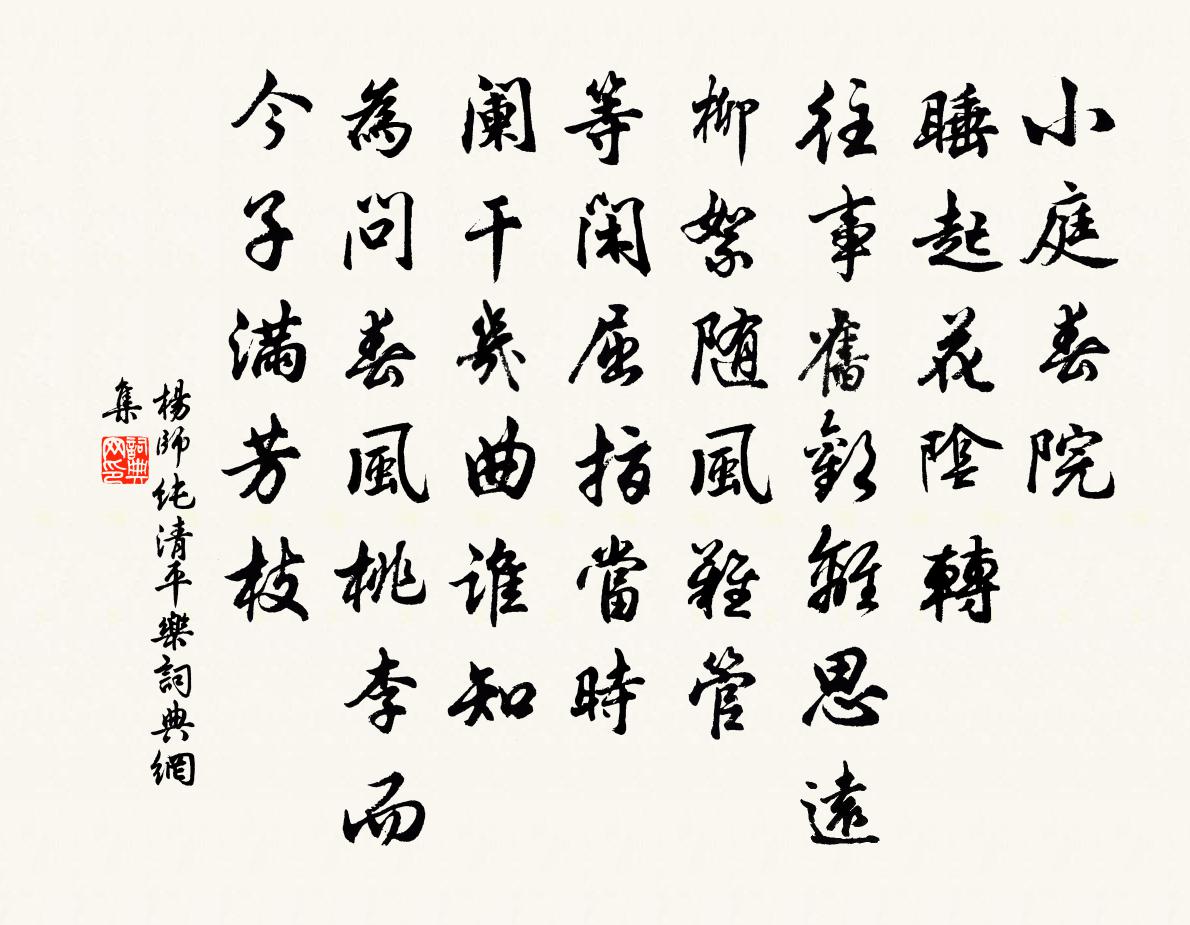 小庭春院
睡起花陰轉
往事舊歡離思遠
柳絮随風難管
等閑屈指當時
闌干幾曲誰知
為問春風桃李而
今子滿芳枝
楊師純清平樂詞典網
集
詞典
网印